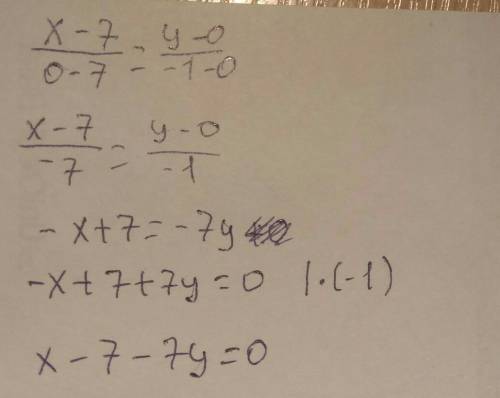 x-7/0-7 = y-0/-1-0
x-7/-7 = y-0/-1
-x+7=-7y
-x+7+7y=0 |·(-1)
x-7-7y=0